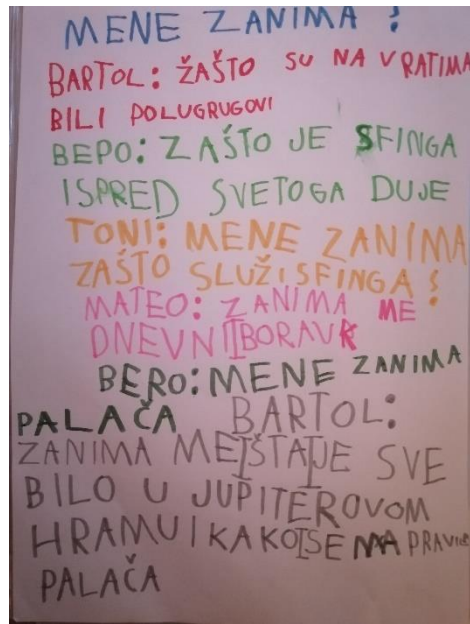 MENE ZANIMA ?
BARTOL: ŽAŠTO SU NA VRATIMA
BILI POLUGRUGOVI
BEPO: ZAŠTO JE SFINGA
ISPRED SVETOGA DUJE
TONI: MENE ZANIMA
ZAŠTO SLUŽI SFINGA?
MATEO: ZANIMA ME
DNEVNI BORAVK
BERO: MENE ZANIMA
PALAČA BARTOL:
ZANIMA ME ŠTA JE SVE
BILO U JUPITEROVOM
HRAMU I KAKO SE
PALAČA